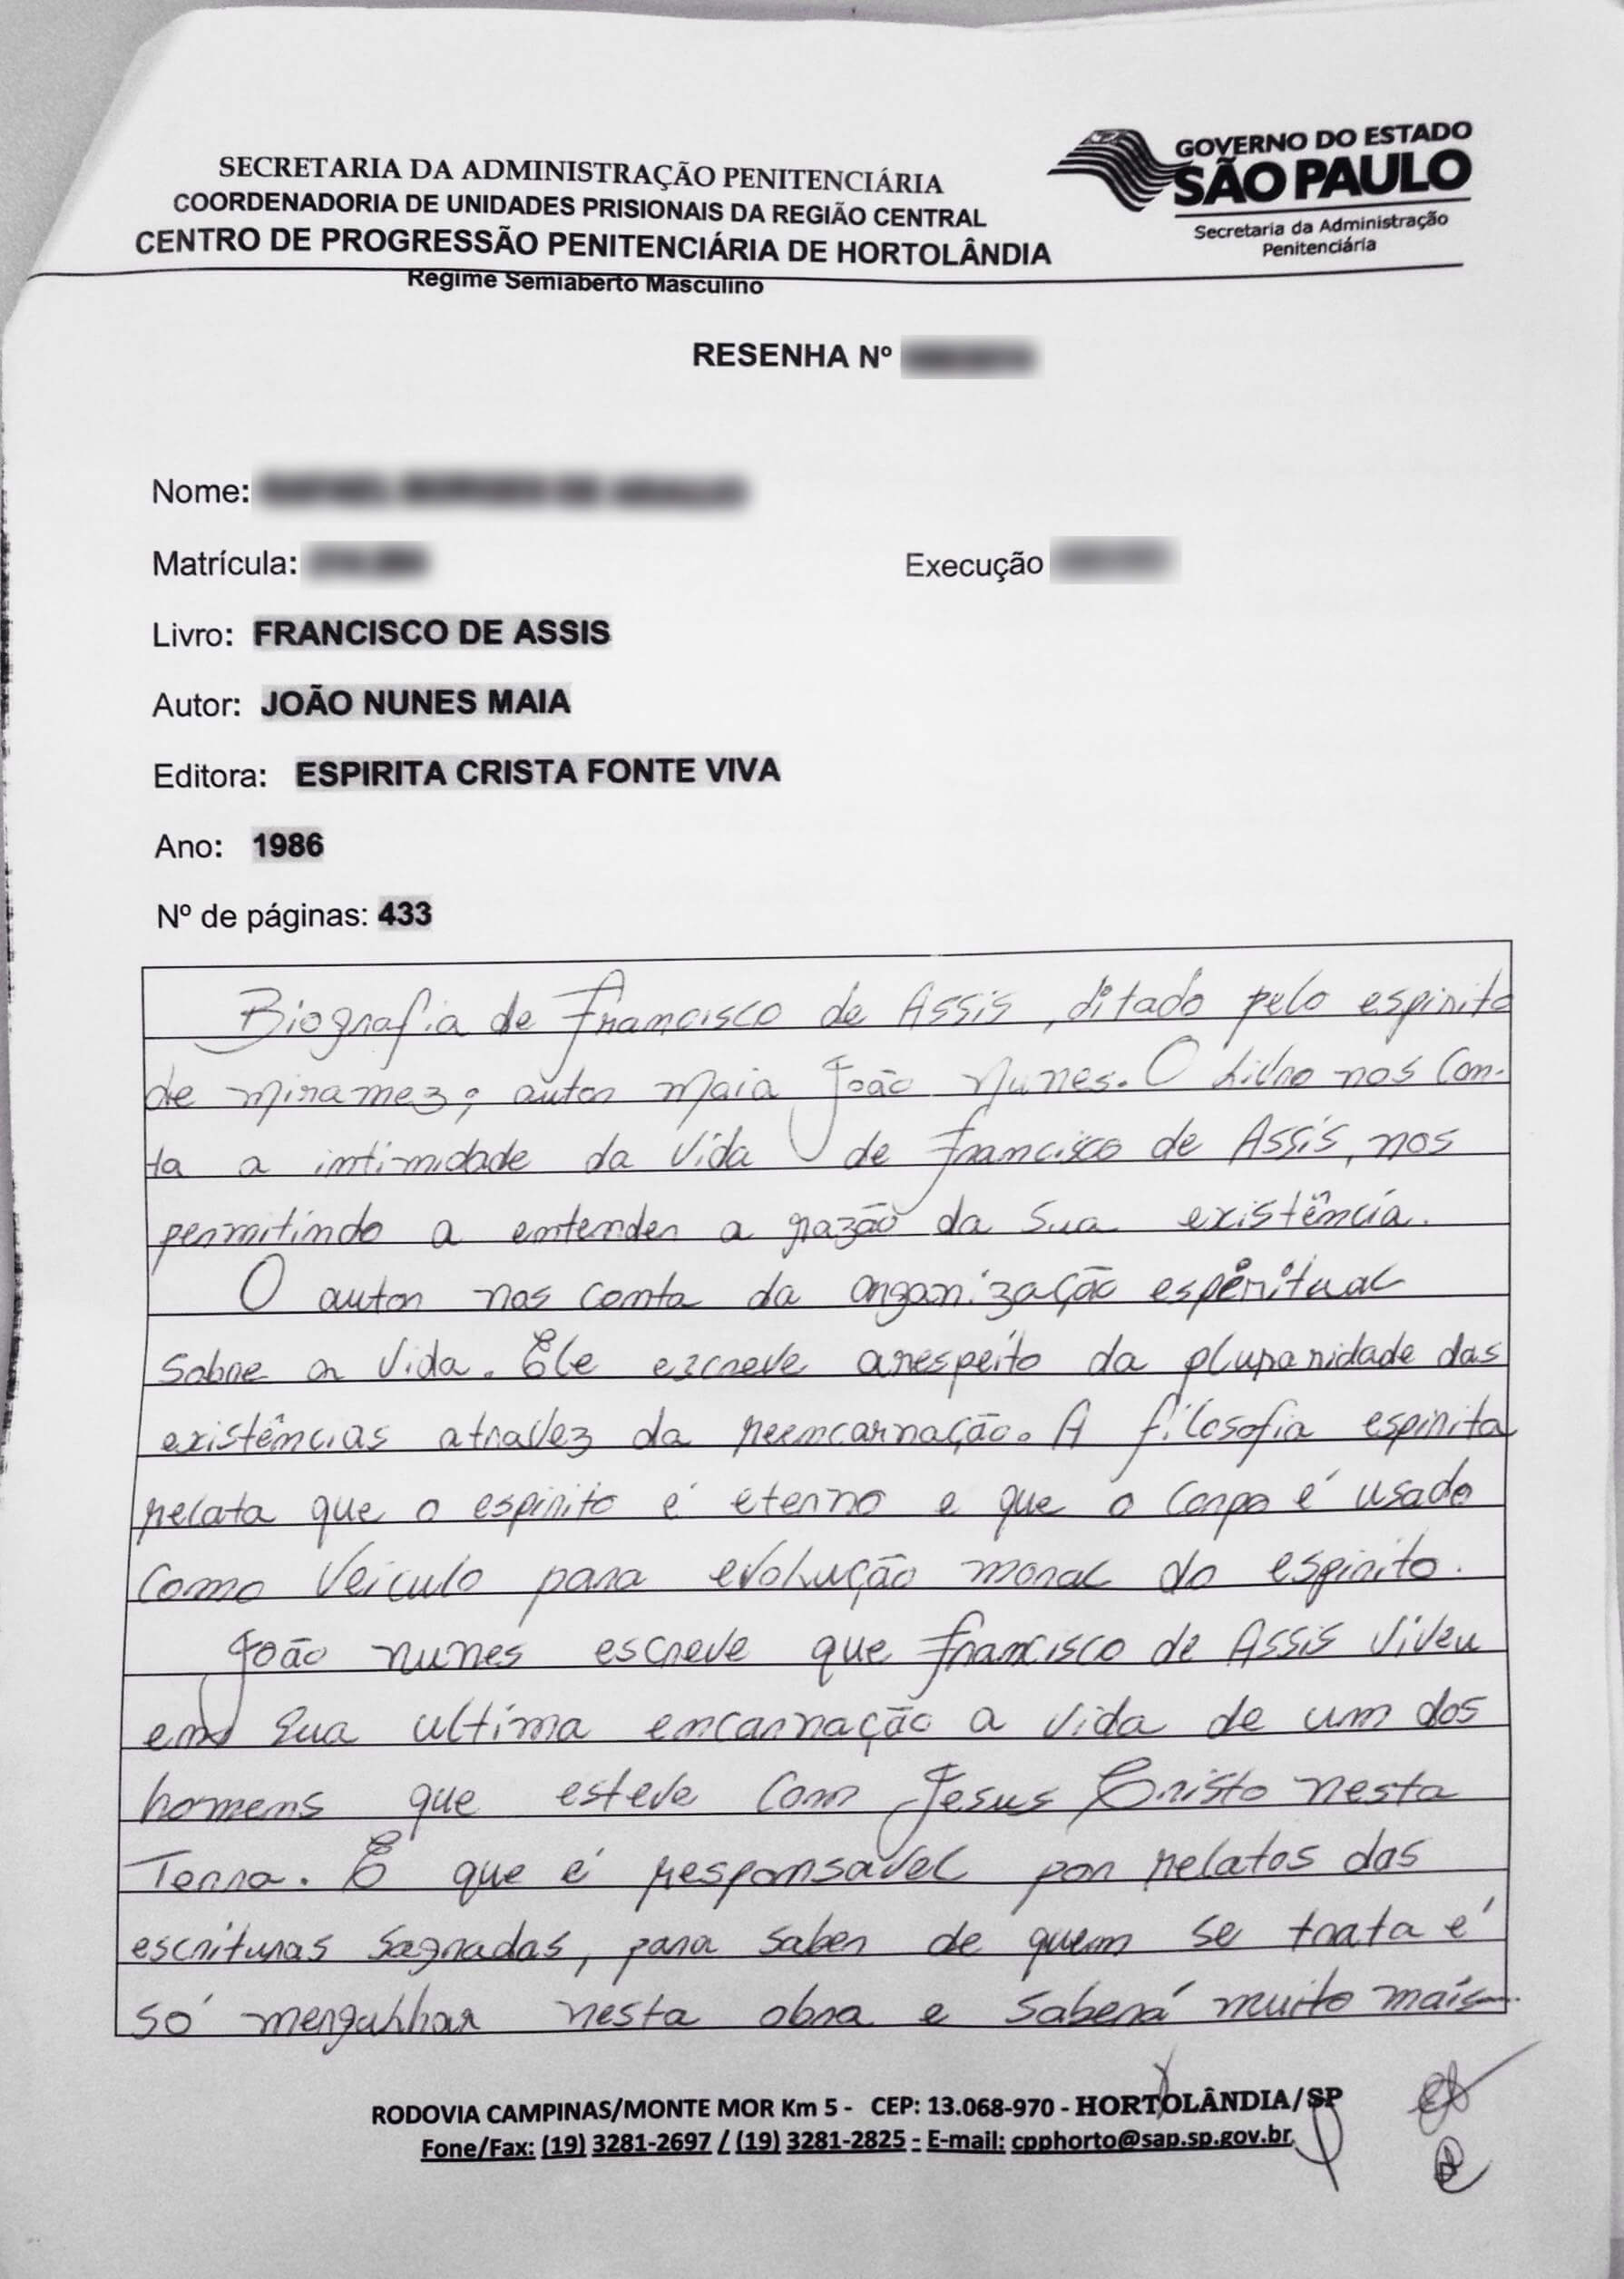 SECRETARIA DA ADMINISTRAÇÃO PENITENCIÁRIA
COORDENADORIA DE UNIDADES PRISIONAIS DA REGIÃO CENTRAL
CENTRO DE PROGRESSÃO PENITENCIÁRIA DE HORTOLÂNDIA
Regime Semiaberto Masculino
GOVERNO DO ESTADO
SÃO PAULO
Secretaria da Administração
Penitenciária
RESENHA Nº
Nome:
Matrícula: Execução
Livro: FRANCISCO DE ASSIS
Autor: JOÃO NUNES MAIA
Editora: ESPIRITA CRISTA FONTE VIVA
Ano: 1986
Nº de páginas: 433
Biografia de Francisco de Assis, ditado pelo espirito
de Miramez; autor Maia João Nunes. O Livro nos Con-
ta a intimidade da Vida de Francisco de Assis, nos
permitindo a entender a razão da Sua existência.
O autor nos conta da organização espiritual
Sobre a Vida. Ele escreve arespeito da pluraridade das
existências atravez da reencarnação. A filosofia espirita
relata que o espirito é eterno e que o Corpo é usado
Como Veiculo para evolução moral do espirito.
João nunes escreve que Francisco de Assis Viveu
em Sua ultima encarnação a vida de um dos
homens que esteve Com Jesus Cristo nesta
Terra. E que é responsavel por relatos das
escrituras Sagradas, para saber de quem se trata é
só mergulhar nesta obra e Saberá muito mais.
RODOVIA CAMPINAS/MONTE MOR Km 5 - CEP: 13.068-970 - HORTOLÂNDIA/SP
Fone/Fax: (19) 3281-2697 / (19) 3281-2825 - E-mail: cpphorto@sap.sp.gov.br